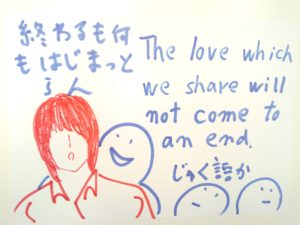 終わるも何
もはじまっと
らん
The love which
we share will
not come to
an end.
じゅく語か